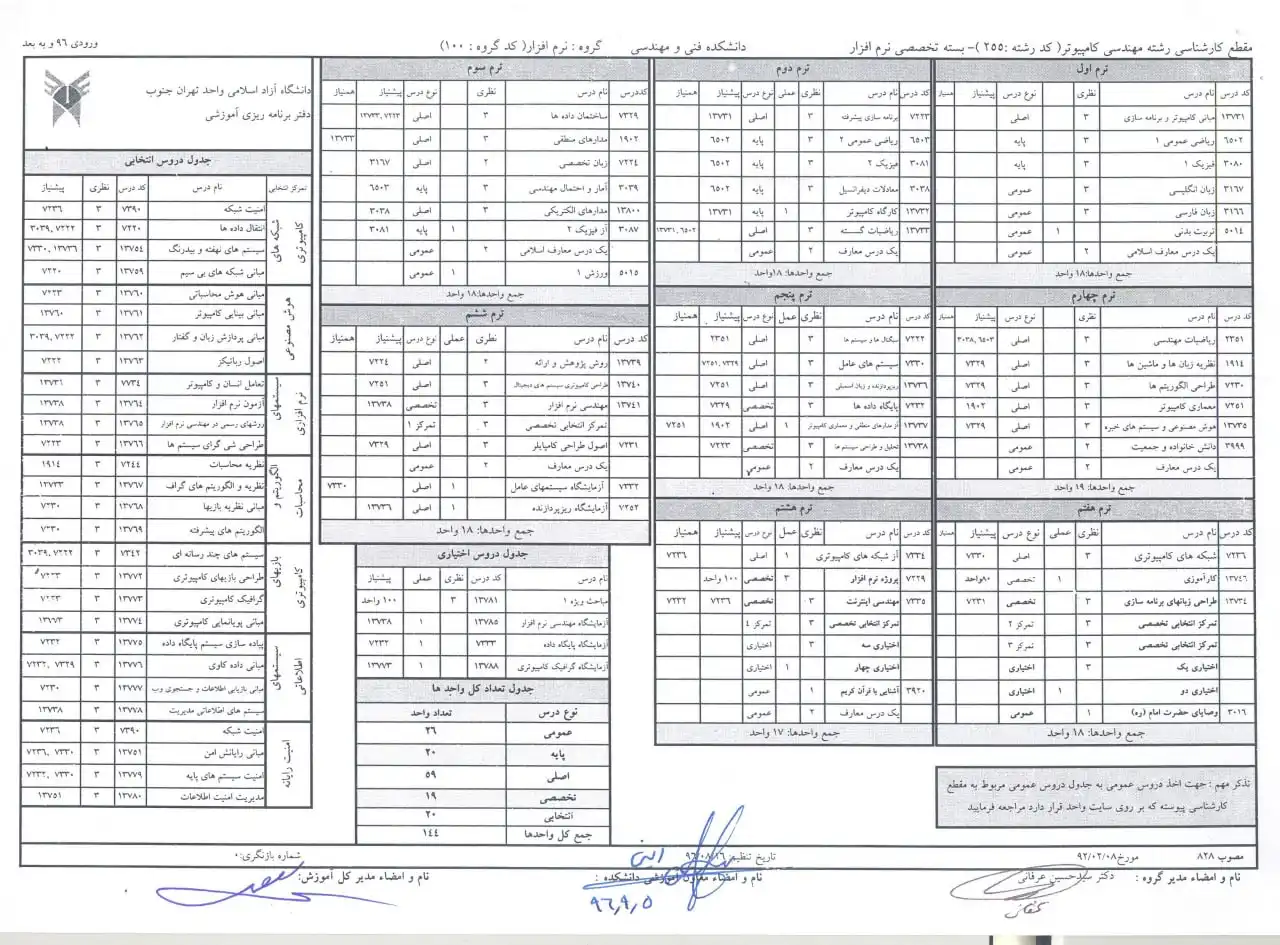 مقطع کارشناسی رشته مهندسی کامپیوتر( کد رشته :۲۵۵ )- بسته تخصصی نرم افزار دانشکده فنی و مهندسی گروه : نرم افزار( کد گروه : ۱۰۰) ورودی ۹۶ و به بعد
ترم اول
کد درس نام درس نظری نوع درس پیشنیاز
۱۳۷۳۱ مبانی کامپیوتر و برنامه سازی ۳ اصلی
۶۵۰۲ ریاضی عمومی ۱ ۳ پایه
۳۰۸۰ فیزیک ۱ ۳ پایه
۳۱۶۷ زبان انگلیسی ۳ عمومی
۳۱۶۶ زبان فارسی ۳ عمومی
۵۰۱۴ تربیت بدنی ۱ عمومی
یک درس معارف اسلامی ۲ عمومی
جمع واحدها:۱۸ واحد
ترم دوم
کد درس نام درس نظری عملی نوع درس پیشنیاز همنیاز
۷۲۲۳ برنامه سازی پیشرفته ۳ اصلی ۱۳۷۳۱
۶۵۰۳ ریاضی عمومی ۲ ۳ پایه ۶۵۰۲
۳۰۸۱ فیزیک ۲ ۳ پایه ۶۵۰۲
۳۰۳۸ معادلات دیفرانسیل ۳ پایه ۶۵۰۲
۱۳۷۳۲ کارگاه کامپیوتر ۱ پایه ۱۳۷۳۱
۱۳۷۳۳ ریاضیات گسسته ۳ اصلی ۱۳۷۳۱,۶۵۰۲
یک درس معارف ۲ عمومی
جمع واحدها: ۱۸واحد
ترم سوم
کددرس نام درس نظری نوع درس پیشنیاز همنیاز
۷۳۲۹ ساختمان داده ها ۳ اصلی ۱۳۷۳۳,۷۲۲۳
۱۹۰۲ مدارهای منطقی ۳ اصلی ۱۳۷۳۳
۷۲۲۴ زبان تخصصی ۲ اصلی ۳۱۶۷
۳۰۳۹ آمار و احتمال مهندسی ۳ پایه ۶۵۰۳
۱۳۸۰۰ مدارهای الکتریکی ۳ اصلی ۳۰۳۸
۳۰۸۷ آز فیزیک ۲ ۱ پایه ۳۰۸۱
یک درس معارف اسلامی ۲ عمومی
۵۰۱۵ ورزش ۱ ۱ عمومی
جمع واحدها:۱۸ واحد
دانشگاه آزاد اسلامی واحد تهران جنوب
دفتر برنامه ریزی آموزشی
ترم چهارم
کد درس نام درس نظری نوع درس پیشنیاز
۲۳۵۱ ریاضیات مهندسی ۳ اصلی ۳۰۳۸,۶۵۰۳
۱۹۱۴ نظریه زبان ها و ماشین ها ۳ اصلی ۷۳۲۹
۷۲۳۰ طراحی الگوریتم ها ۳ اصلی ۷۳۲۹
۷۲۵۱ معماری کامپیوتر ۳ اصلی ۱۹۰۲
۱۳۷۳۵ هوش مصنوعی و سیستم های خبره ۳ اصلی ۷۳۲۹
۳۹۹۹ دانش خانواده و جمعیت ۲ عمومی
یک درس معارف ۲ عمومی
جمع واحدها: ۱۹ واحد
ترم پنجم
کد درس نام درس نظری عمل نوع درس پیشنیاز همنیاز
۷۲۲۲ سیگنال ها و سیستم ها ۳ اصلی ۲۳۵۱
۷۳۳۰ سیستم های عامل ۳ اصلی ۷۲۵۱,۷۳۲۹
۱۳۷۳۶ ریزپردازنده و زبان اسمبلی ۳ اصلی ۷۲۵۱
۷۲۳۲ پایگاه داده ها ۳ تخصصی ۷۳۲۹
۱۳۷۳۷ آز مدارهای منطقی و معماری کامپیوتر ۱ اصلی ۱۹۰۲ ۷۲۵۱
۱۳۷۳۸ تحلیل و طراحی سیستم ها ۳ تخصصی ۷۲۲۳
یک درس معارف ۲ عمومی
جمع واحدها: ۱۸ واحد
ترم ششم
کد درس نام درس نظری عملی نوع درس پیشنیاز همنیاز
۱۳۷۳۹ روش پژوهش و ارائه ۲ اصلی ۷۲۲۴
۱۳۷۴۰ طراحی کامپیوتری سیستم های دیجیتال ۳ اصلی ۷۲۵۱
۱۳۷۴۱ مهندسی نرم افزار ۳ تخصصی ۱۳۷۳۸
تمرکز انتخابی تخصصی ۳ تمرکز ۱
۷۲۳۱ اصول طراحی کامپایلر ۳ اصلی ۷۳۲۹
یک درس معارف ۲ عمومی
۷۳۳۲ آزمایشگاه سیستمهای عامل ۱ اصلی ۷۳۳۰
۷۲۵۲ آزمایشگاه ریزپردازنده ۱ اصلی ۱۳۷۳۶
جمع واحدها: ۱۸ واحد
ترم هفتم
کد درس نام درس نظری عملی نوع درس پیشنیاز
۷۲۳۶ شبکه های کامپیوتری ۳ اصلی ۷۳۳۰
۱۳۷۴۶ کارآموزی ۱ تخصصی ۸۰واحد
۱۳۷۳۴ طراحی زبانهای برنامه سازی ۳ تخصصی ۷۲۳۱
تمرکز انتخابی تخصصی ۳ تمرکز ۲
تمرکز انتخابی تخصصی ۳ تمرکز ۳
اختیاری یک ۳ اختیاری
اختیاری دو ۱ اختیاری
۳۰۱۶ وصایای حضرت امام (ره) ۱ عمومی
جمع واحدها: ۱۸ واحد
ترم هشتم
کد درس نام درس نظری عمل نوع درس پیشنیاز همنیاز
۷۲۳۴ آز شبکه های کامپیوتری ۱ اصلی ۷۲۳۶
۷۲۲۹ پروژه نرم افزار ۳ تخصصی ۱۰۰ واحد
۷۲۳۵ مهندسی اینترنت ۳ تخصصی ۷۲۳۶ ۷۲۳۲
تمرکز انتخابی تخصصی ۳ تمرکز ٤
اختیاری سه ۳ اختیاری
اختیاری چهار ۱ اختیاری
۳۹۲۰ آشنایی با قرآن کریم ۱ عمومی
یک درس معارف ۲ عمومی
جمع واحدها: ۱۷ واحد
جدول دروس اختیاری
نام درس کد درس نظری عملی پیشنیاز
مباحث ویژه ۱ ۱۳۷۸۱ ۳ ۱۰۰ واحد
آزمایشگاه مهندسی نرم افزار ۱۳۷۸۵ ۱ ۱۳۷۳۸
آزمایشگاه پایگاه داده ۷۲۳۳ ۱ ۷۲۳۲
آزمایشگاه گرافیک کامپیوتری ۱۳۷۸۸ ۱ ۱۳۷۷۳
جدول تعداد کل واحد ها
نوع درس تعداد واحد
عمومی ۲٦
پایه ۲۰
اصلی ۵۹
تخصصی ۱۹
انتخابی ۲۰
جمع کل واحدها ۱٤٤
جدول دروس انتخابی
تمرکز انتخابی نام درس کد درس نظری پیشنیاز
شبکه های کامپیوتری
امنیت شبکه ۷۳۹۰ ۳ ۷۲۳۶
انتقال داده ها ۷۲۲۰ ۳ ۳۰۳۹,۷۲۲۲
سیستم های نهفته و بیدرنگ ۱۳۷۵۴ ۳ ۷۳۳۰,۱۳۷۳۶
مبانی شبکه های بی سیم ۱۳۷۵۹ ۳ ۷۲۲۰
هوش مصنوعی
مبانی هوش محاسباتی ۱۳۷۶۰ ۳ ۷۲۲۳
مبانی بینایی کامپیوتر ۱۳۷۶۱ ۳ ۱۳۷۶۰
مبانی پردازش زبان و گفتار ۱۳۷۶۲ ۳ ۳۰۳۹,۷۲۲۲
اصول رباتیکز ۱۳۷۶۳ ۳ ۷۲۲۲
سیستمهای نرم افزاری
تعامل انسان و کامپیوتر ۷۷۳۴ ۳ ۱۳۷۳۱
آزمون نرم افزار ۱۳۷۶۴ ۳ ۱۳۷۳۸
روشهای رسمی در مهندسی نرم افزار ۱۳۷۶۵ ۳ ۱۳۷۳۸
طراحی شی گرای سیستم ها ۱۳۷۶۶ ۳ ۷۲۲۳
الگوریتم و محاسبات
نظریه محاسبات ۷۲۴۴ ۳ ۱۹۱۴
نظریه و الگوریتم های گراف ۱۳۷۶۷ ۳ ۱۳۷۳۳
مبانی نظریه بازیها ۱۳۷۶۸ ۳ ۷۲۳۰
الگوریتم های پیشرفته ۱۳۷۶۹ ۳ ۷۲۳۰
بازیهای کامپیوتری
سیستم های چند رسانه ای ۷۳۴۲ ۳ ۳۰۳۹,۷۲۲۲
طراحی بازیهای کامپیوتری ۱۳۷۷۲ ۳
گرافیک کامپیوتری ۱۳۷۷۳ ۳
مبانی پویانمایی کامپیوتری ۱۳۷۷۴ ۳ ۱۳۷۷۳
سیستمهای اطلاعاتی
پیاده سازی سیستم پایگاه داده ۱۳۷۷۵ ۳ ۷۲۳۲
مبانی داده کاوی ۱۳۷۷۶ ۳ ۷۲۳۲,۷۳۲۹
مبانی بازیابی اطلاعات و جستجوی وب ۱۳۷۷۷ ۳ ۷۲۳۰
سیستم های اطلاعاتی مدیریت ۱۳۷۷۸ ۳ ۱۳۷۳۸
امنیت رایانه
امنیت شبکه ۷۳۹۰ ۳ ۷۲۳۶
مبانی رایانش امن ۱۳۷۵۱ ۳ ۷۲۳۶,۷۳۳۰
امنیت سیستم های پایه ۱۳۷۷۹ ۳ ۷۲۳۲,۷۳۳۰
مدیریت امنیت اطلاعات ۱۳۷۸۰ ۳ ۱۳۷۵۱
تذکر مهم : جهت اخذ دروس عمومی به جدول دروس عمومی مربوط به مقطع
کارشناسی پیوسته که بر روی سایت واحد قرار دارد مراجعه فرمایید
مصوب ۸۲۸ مورخ۹۲/۰۲/۰۸ تاریخ تنظیم: ۹۶/۰۸/۱۶ شماره بازنگری:۰
نام و امضاء مدیر گروه : دکتر سیدحسین عرفانی نام و امضاء معاون آموزشی دانشکده : نام و امضاء مدیر کل آموزش:
۹۶,۹,۵